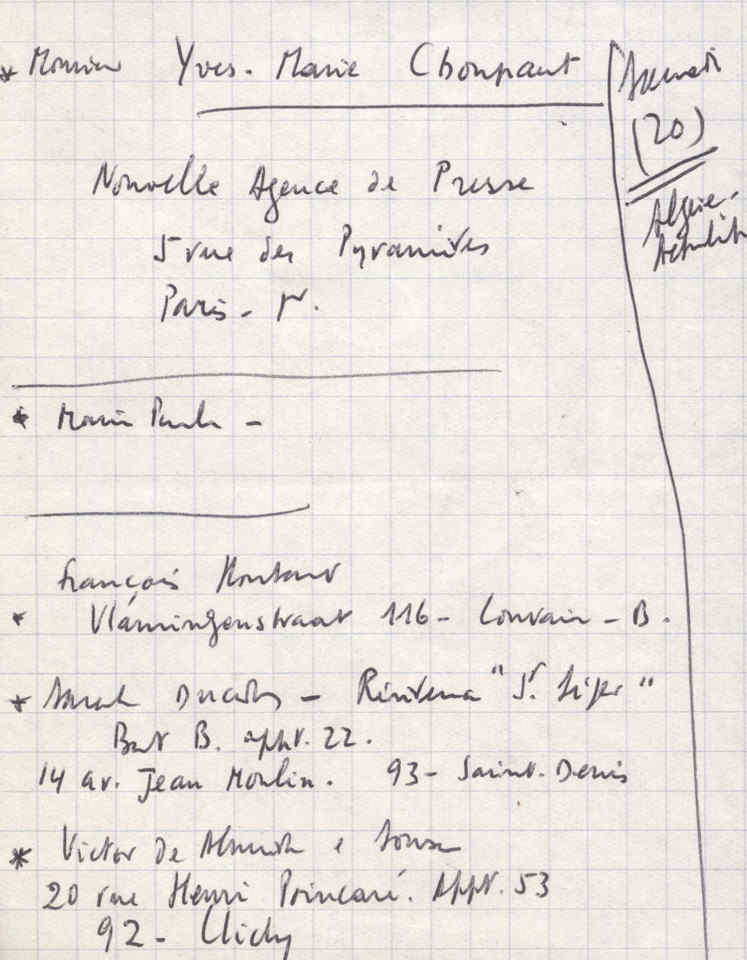 * Monsieur Yves-Marie Choupaut
Nouvelle Agence de Presse
5 rue des Pyramides
Paris - 1er.
* Marie Paule -
François Houtart
* Vlamingenstraat 116 - Louvain - B.
* Ducastes - Résidence "St. Léger"
Bat B. appt. 22.
14 av. Jean Moulin. 93 - Saint-Denis
* Victor de Almeida e Sousa
20 rue Henri Poincaré. Appt. 53
92 - Clichy
(20)
Algérie-
Actualité